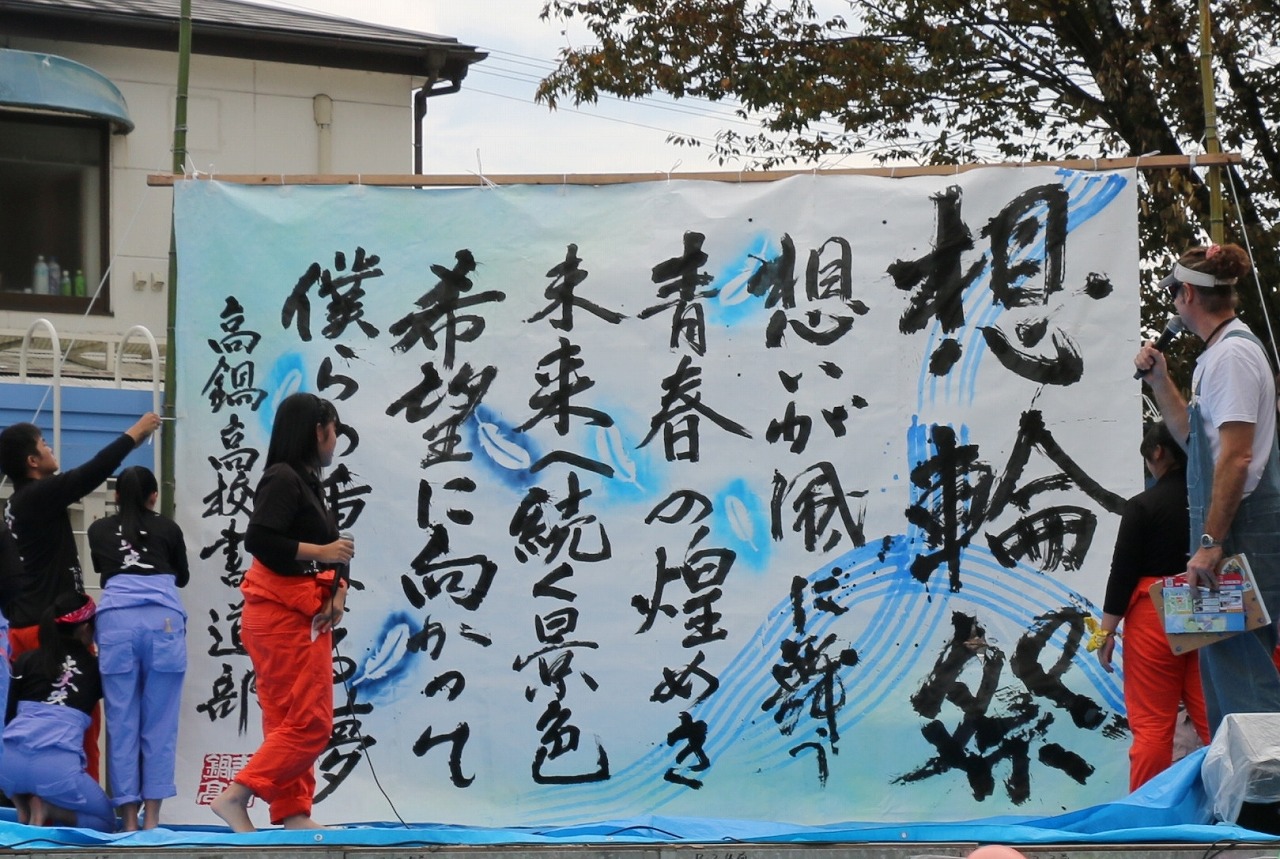 想輪祭
想いが風に舞う
青春の煌めき
未来へ続く景色
希望に向かって
僕らの
夢
高鍋高校書道部